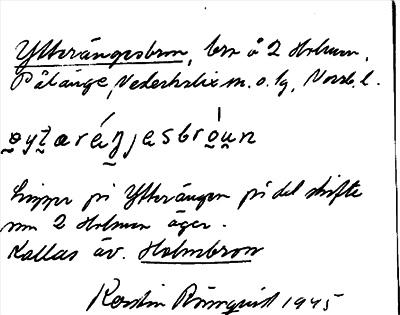 Ytterängesbron, bro å 2 Holmen,
Pålänge, Nederkalix sn. o. lg, Norrb. l.
øytareŋjesbroun
Ligger på Ytterängen på det skifte
som 2 Holmen äger.
Kallas äv. Holmbron
Kerstin Rönnqvist 1945